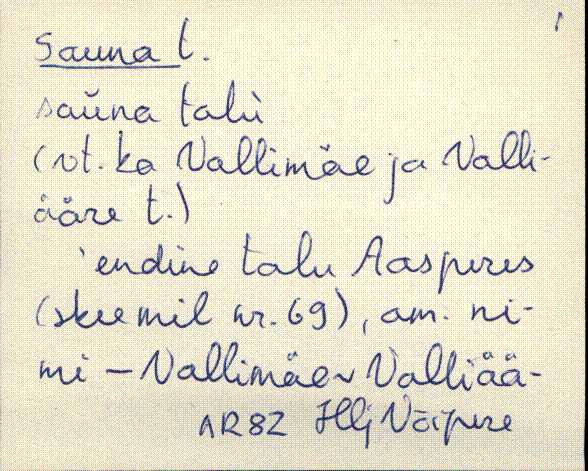 Sauna t.
saŭna talù
(vt. ka Vallimäe ja Valli-
ääre t.)
'endine talu Aasperes
(skeemil nr. 69), am. ni-
mi – Vallimäe ~ Valliää-
AR82 Illj Võipere